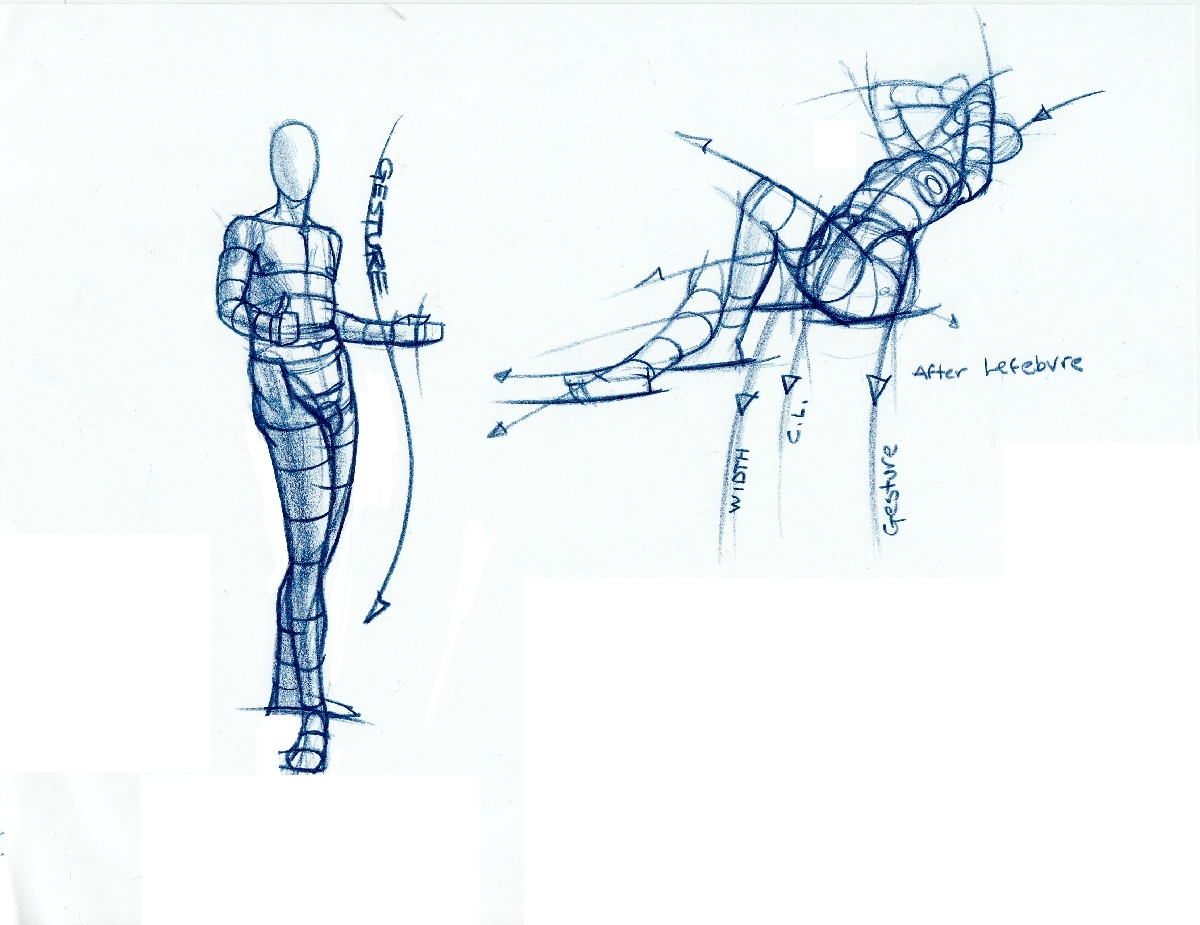 GESTURE
After Lefebvre
WIDTH
C.L.
Gesture